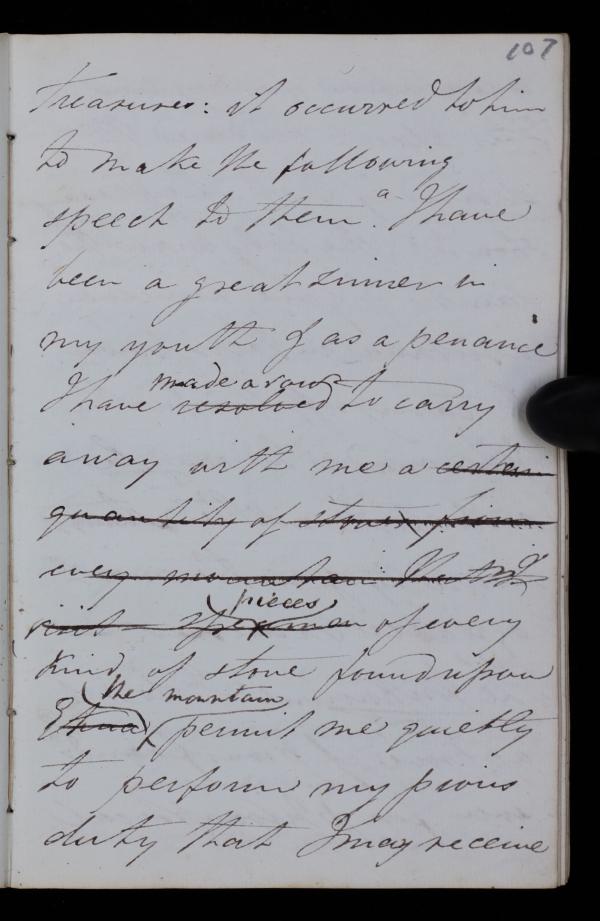 107
Treasures: it occurred to him
to make the following
speech to them. "I have
been a great sinner in
my youth & as a penance
made a vow
I have resolved to carry
away with me a certain
quantity of stones from
every mountain that I
visit - specimen of every
pieces
kind of stone found upon
the mountain
Etna permit me quietly
to perform my pious
duty that I may receive